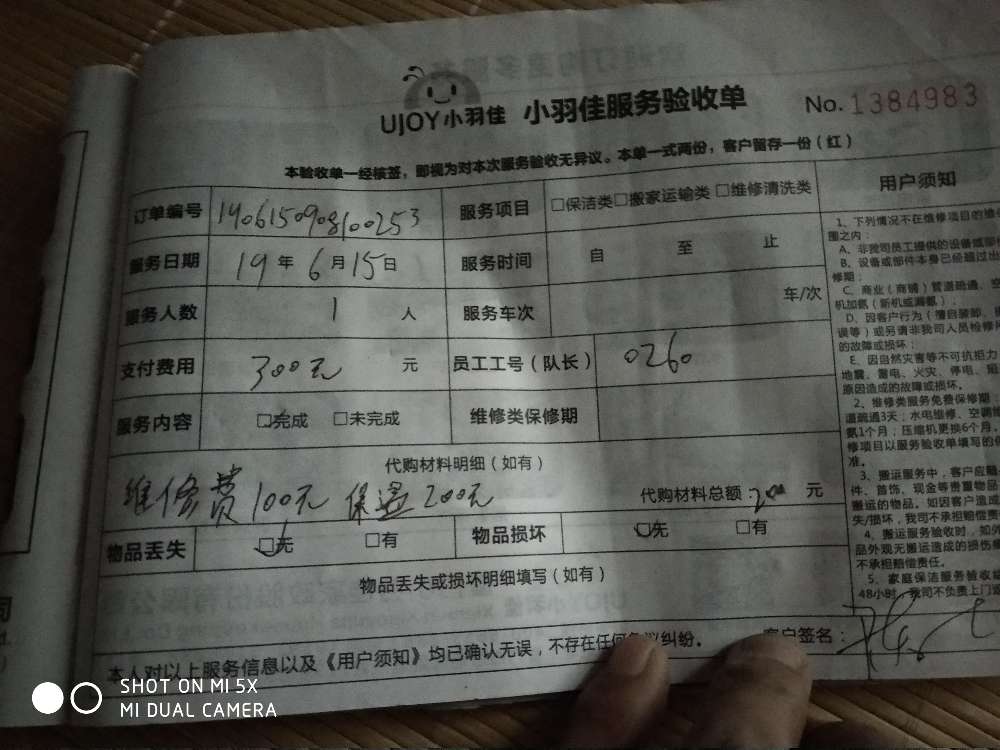 UJOY小羽佳 小羽佳服务验收单 No. 1384983
本验收单一经核签，即视为对本次服务验收无异议。本单一式两份，客户留存一份（红）
订单编号 1906150908100253 服务项目 □保洁类□搬家运输类 □维修清洗类
服务日期 19年6月15日 服务时间 自 至 止
服务人数 1 人 服务车次 车/次
支付费用 300元 元 员工工号（队长） 0260
服务内容 □完成 □未完成 维修类保修期
代购材料明细（如有）
维修费100元 保温200元 代购材料总额：200 元
物品丢失 □无 □有 物品损坏 □无 □有
物品丢失或损坏明细填写（如有）
本人对以上服务信息以及《用户须知》均已确认无误，不存在任何争议纠纷。 客户签名：
用户须知
1、下列情况不在维修项目的
围之内：
A、非我司员工提供的设备或部
B、设备或部件本身已经超过出
修期；
C、商业（商铺）管道疏通、空
机加氨（新机或漏氨）；
D、因客户行为（擅自装卸、
误等）或另请非我司人员检修
的故障或损坏；
E、因自然灾害等不可抗拒力
地震、雷电、火灾、停电、
原因造成的故障或损坏。
2、维修类服务免费保修期：
道疏通3天；水电维修、空调
氨1个月；压缩机更换6个月，
修项目以服务验收单填写的保
准。
3、搬运服务中，客户应
件、首饰、现金等贵重物品
搬运的物品。如因客户造成
失/损坏，我司不承担赔偿责
4、搬运服务验收时，如
品外观无搬运造成的损伤
不承担赔偿责任。
5、家庭保洁服务验收
48小时，我司不负责上门
司
SHOT ON MI 5X
MI DUAL CAMERA